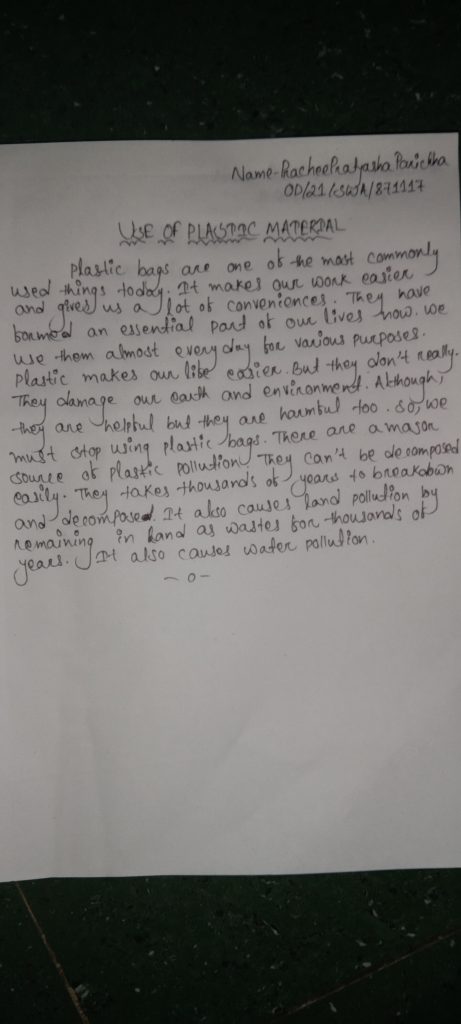 Name-Prachee Pratyasha Parichha
OD/21/CSWA/871117
USE OF PLASTIC MATERIAL
Plastic bags are one of the most commonly
used things today. It makes our work easier
and gives us a lot of conveniences. They have
formed an essential part of our lives now. we
use them almost every day for various purposes.
Plastic makes our life easier. But they don't really.
They damage our earth and environment. Although,
they are helpful but they are harmful too. so, we
must stop using plastic bags. There are a mason
source of plastic pollution. They can't be decomposed
easily. They takes thousands of years to breakdown
and decomposed. It also causes land pollution by
remaining in land as wastes for thousands of
years. It also causes water pollution.
-0-